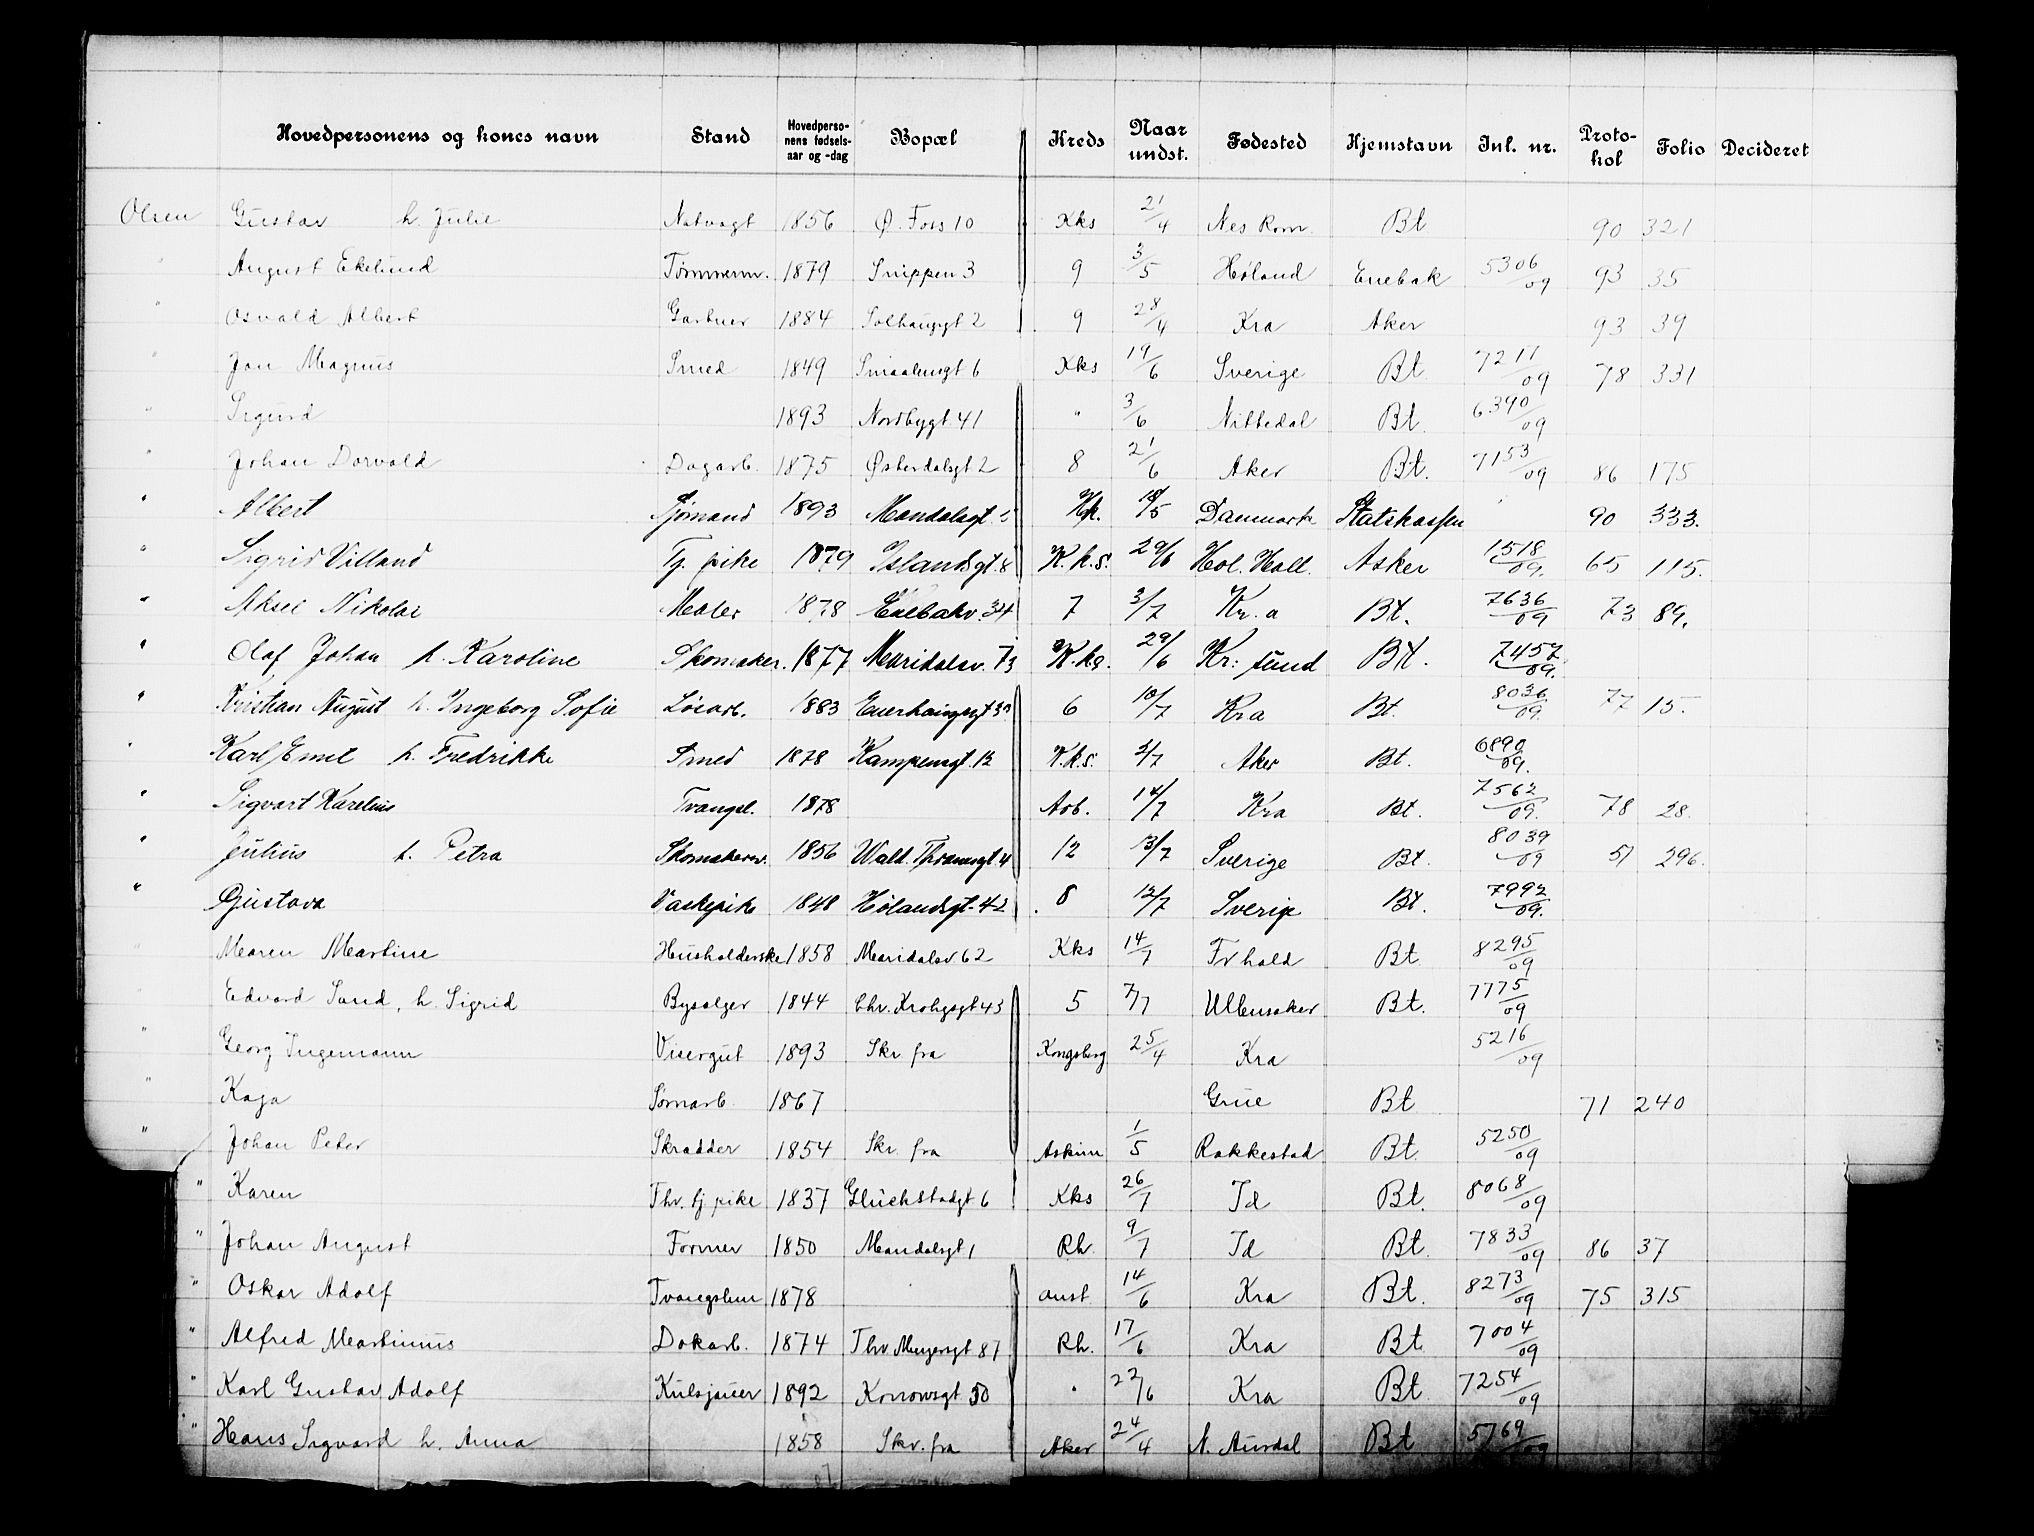 Hovedpersonens og kones navn Stand Hovedperso-nens fødsels-aar og -dag Bopæl Kreds Naar undst. Fødested Hjemstavn Inl. nr. Proto-kol Folio Decideret
Olsen Gustav h. Julie Natvagt 1856 Ø. Foss 10 Kks 21/4 Nes Rom. Bt 90 321
" August Ekelund Tømmerm. 1879 Snippen 3 9 3/5 Høland Enebak 5306/09 93 35
" Osvald Albert Gartner 1884 Solhauggt 2 9 28/4 Kra Aker 93 39
" Jon Magnus Smed 1849 Smaalensgt 6 Kks 19/6 Sverige Bt 7217/09 78 331
" Sigurd 1893 Nordbygt 41 " 3/6 Nittedal Bt. 6390/09
" Johan Dorvald Dagarb. 1875 Østerdalsgt 2 8 21/6 Aker Bt. 7153/09 86 175
" Albert Sjømand 1893 Mandalsgt. 5 18/5 Danmark Statskassen 90 333.
" Sigrid Villand Tj. pike 1879 Islandsgt. 8 K.k.s. 29/6 Hol. Hall. Asker 1518/09. 65 115.
" Aksel Nikolai Maler 1878 Enebakv. 34 7 3/7 Kr.a Bt. 7636/09 73 89.
" Olaf Johan h. Karoline Skomaker. 1877 Maridalsv. 73 K.ks. 29/6 Kr: sund Bt. 7457/09.
" Kristian August h. Ingeborg Sofie Løsarb. 1883 Enerhauggt 6 10/7 Kra Bt. 8036/09. 77 15.
" Karl Emil h. Fredrikke Smed 1878 Kampensgt. 12 K.k.s. 2/7 Aker Bt. 6890/09.
" Sigvart Karelius Tvangsl. 1878 Arb. 14/7 Kra Bt. 7562/09. 78 28.
" Julius h. Petra Skomakersv. 1856 Wald. Thranesgt 4 12 13/7 Sverige Bt. 8039/09 51 296.
" Gustava Vaskepike 1848 Hølandsgt. 42 8 12/7 Sverige Bt. 7992/09.
" Maren Martine Husholderske 1858 Maridalsv 62 Kks 14/7 Frhald Bt. 8295/09
" Edvard Sand, h. Sigrid Byselger 1844 Chr. Krohgsgt 43 5 7/7 Ullensaker Bt. 7775/09
" Georg Ingemann Visergut 1893 Skr fra Kongsberg 25/4 Kra 5216/09
" Kaja Sømarb. 1867 Grue Bt 71 240
" Johan Peter Skradder 1854 Skr. fra Askim 1/5 Rakkestad Bt. 5250/09
" Karen Fhv. tj. pike 1837 Glückstadgt 6 Kks 26/7 Id Bt. 8068/09
" Johan August Former 1850 Mandalsgt 1 Rh. 9/7 Id Bt. 7833/09 86 37
" Oskar Adolf Tvangslem 1878 anst 14/6 Kra Bt. 8273/09 75 315
" Alfred Martinius Dokarb. 1874 Thv Meyersgt 87 Rh. 17/6 Kra Bt. 7004/09
" Karl Gustav Adolf Kulsjauer 1892 50 " 22/6 Kra Bt 7254/09
" Hans Sigvard h. Anna 1858 Skr. fra Aker 24/4 N. Aurdal Bt 5769/09